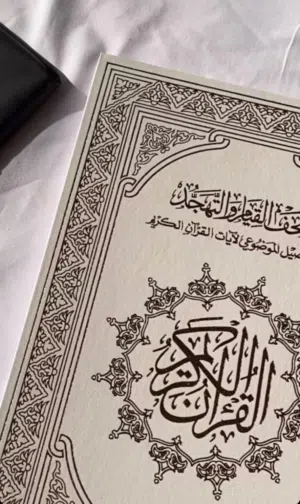 القيام والتهجد
الموضوعي لآيات القرآن الكريم
القرآن الكريم